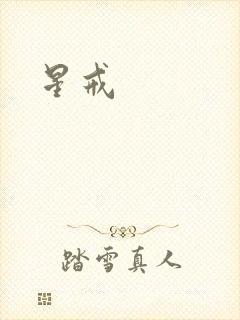 星戒
踏雪真人